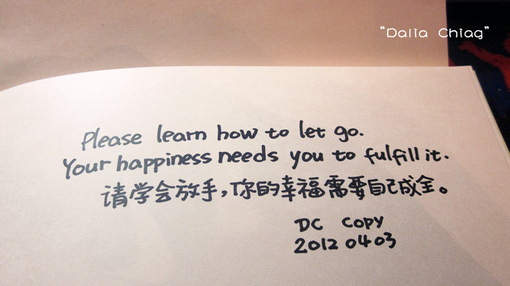 "Dalia Chiag"
Please learn how to let go.
Your happiness needs you to fulfill it.
请学会放手,你的幸福需要自己成全。
DC Copy
2012 04 03